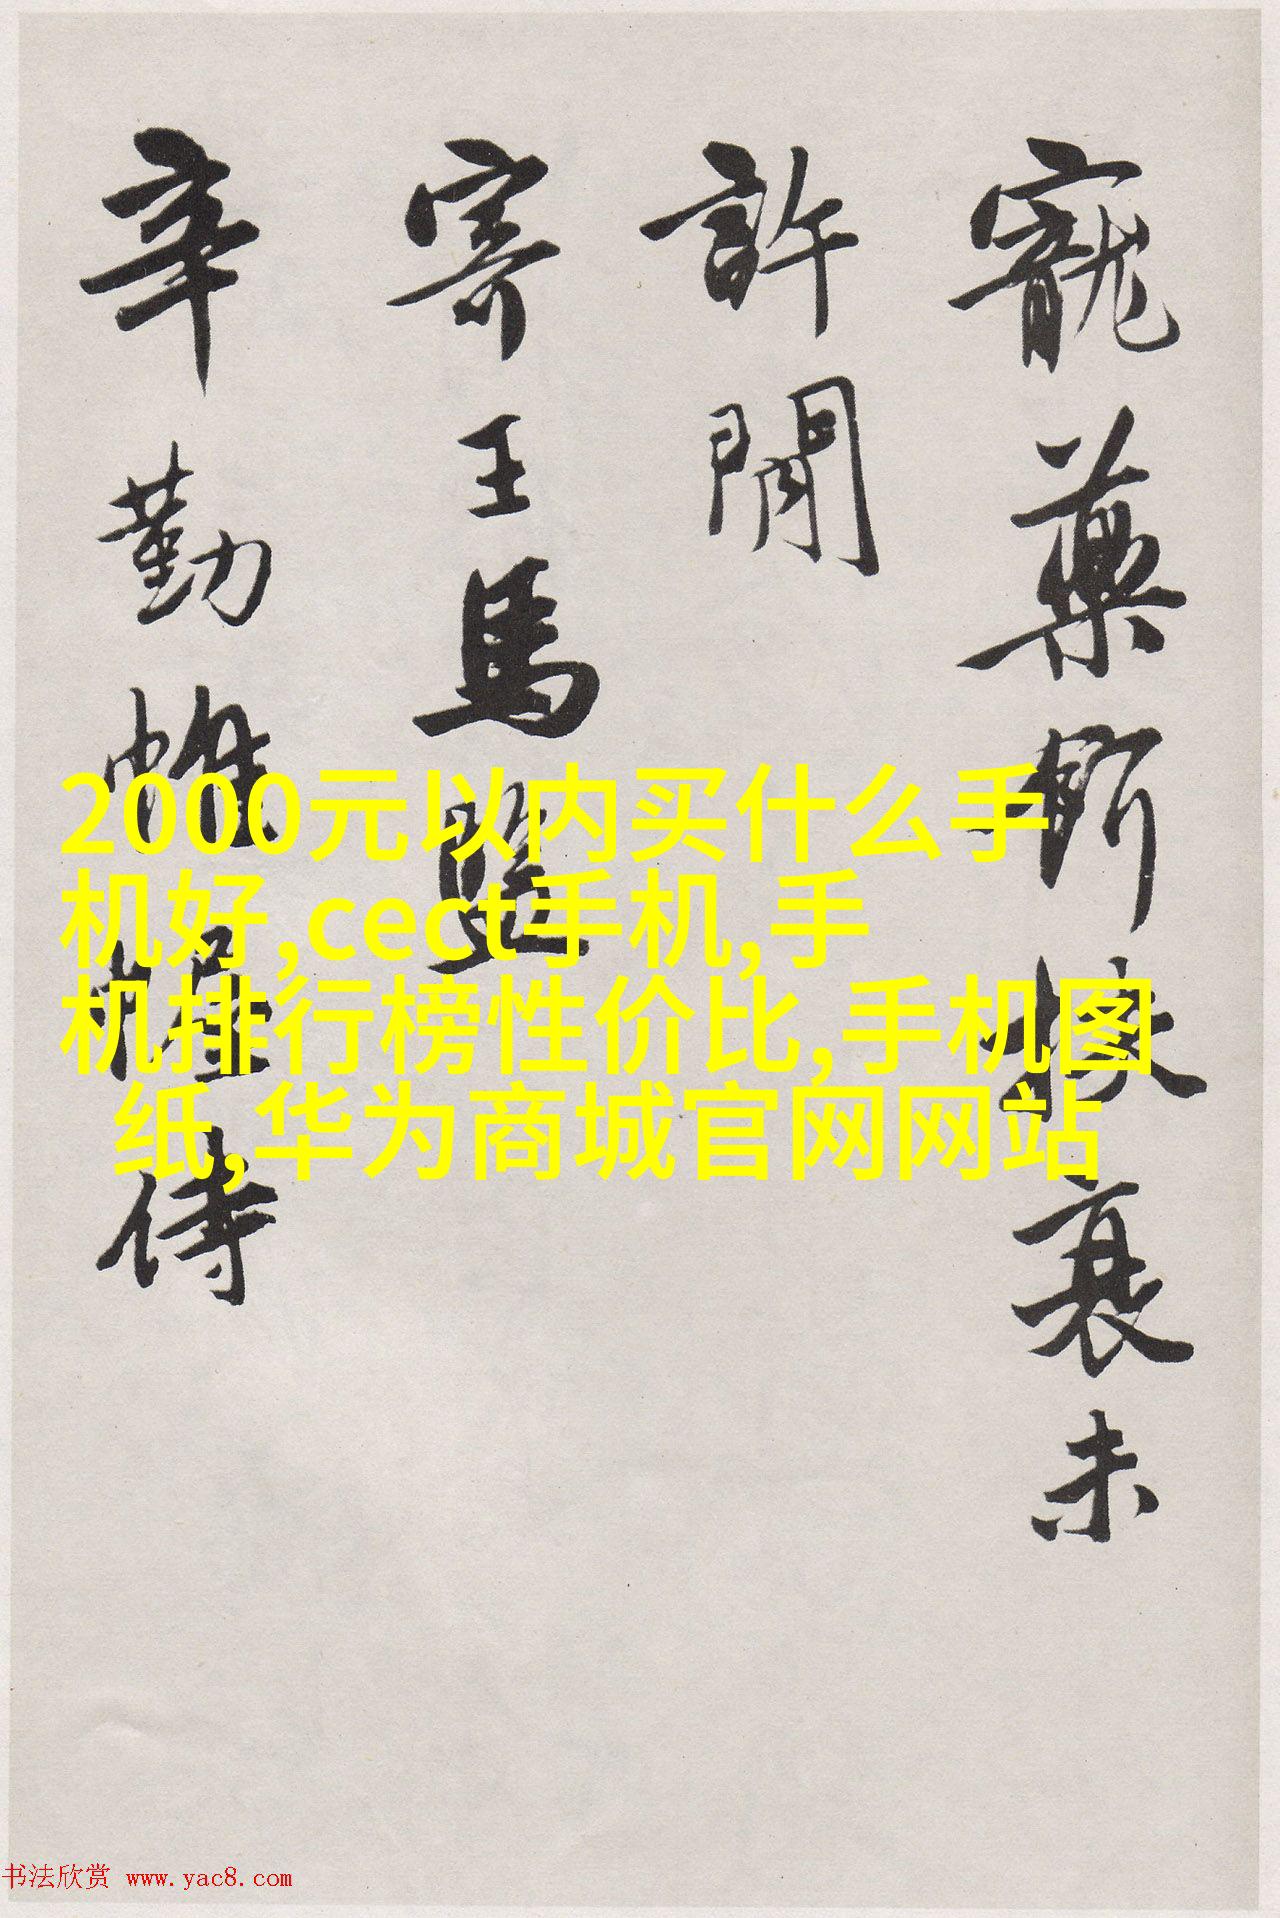 寵藥衰未
許閒
寄王馬監
辛勤帷幄侍
2000元以内买什么手
机好,cect手机,手
机排行榜性价比,手机图
纸,华为商城官网网站
书法欣赏 www.yac8.com